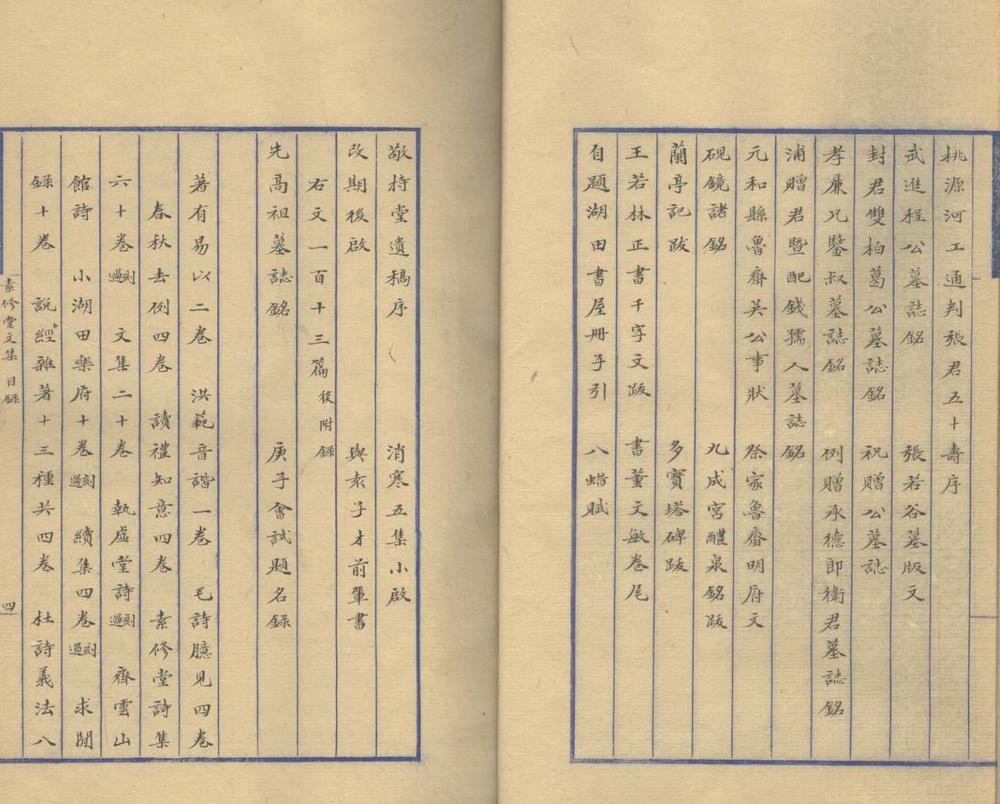 桃源河工通判張君五十壽序
武進程公墓誌銘 張若谷墓版文
封君雙柏葛公墓誌銘 祝贈公墓誌
孝廉兄鑒叔墓誌銘 例贈承德郎衛君墓誌銘
浦贈君暨配錢孺人墓誌銘
元和縣魯齋吴公事狀 祭家魯齋明府文
硯鏡諸銘 九成宮醴泉銘跋
蘭亭記跋 多寶塔碑跋
王若林正書千字文跋 書董文敏卷尾
自題湖田書屋冊子引 八蜡賦
敬持堂遺稿序 消寒五集小啟
改期後啟 與袁子才前輩書
右文一百十三篇 後附錄
先高祖墓誌銘 庚子會試題名錄
著有易以二卷 洪範音諧一卷 毛詩臆見四卷
春秋去例四卷 讀禮知意四卷 素修堂詩集
六十卷刻過 文集二十卷 執虛堂詩刻過 齊雲山
館詩 小湖田樂府十卷刻過 續集四卷刻過 求閒
錄十卷 說經雜著十三種共四卷 杜詩義法八
素修堂文集 目錄 四